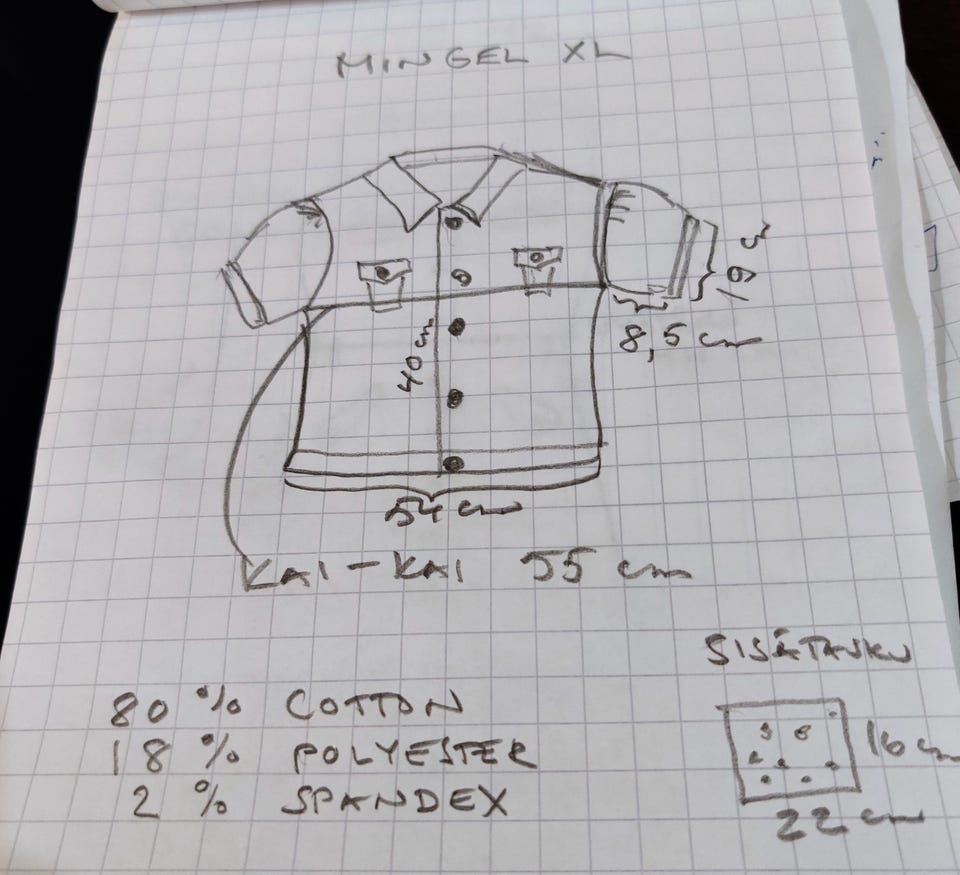 MINGEL XL
19 cm
8,5 cm
40 cm
54 cm
KAI - KAI 55 cm
SISÄTASKU
80 % COTTON
18 % POLYESTER
2 % SPANDEX
16 cm
22 cm